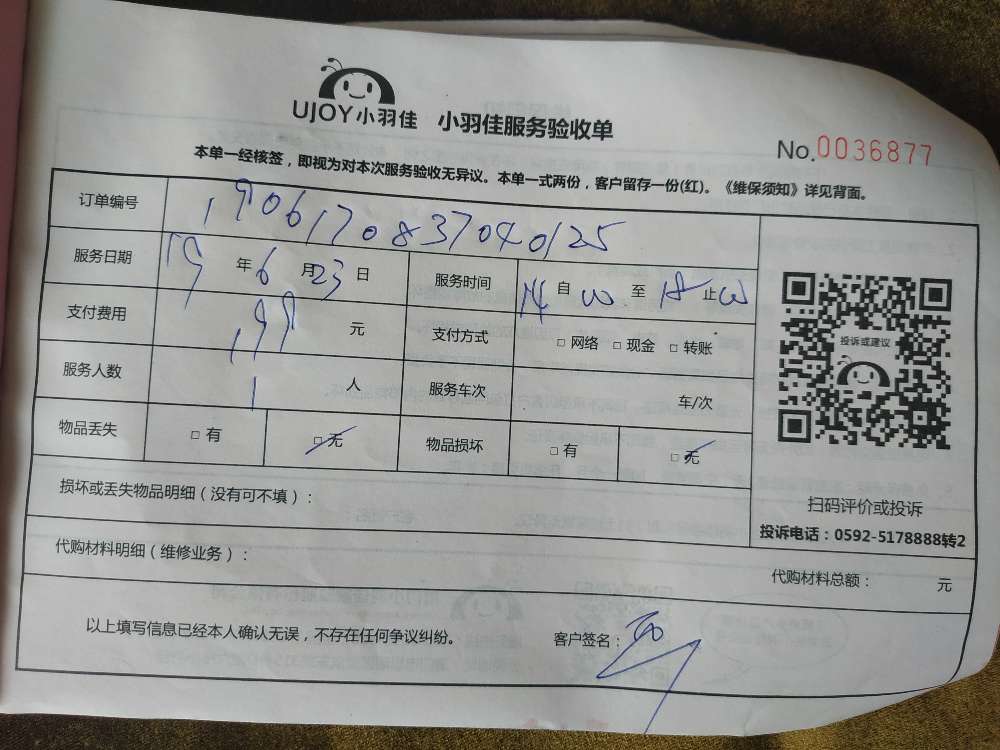 UJOY小羽佳 小羽佳服务验收单
No.0036877
本单一经核签，即视为对本次服务验收无异议。本单一式两份，客户留存一份(红)。《维保须知》详见背面。
订单编号 1906170837040125
服务日期 19年6月23日 服务时间 14自00至18止00
支付费用 199元 支付方式 □ 网络 □ 现金 □ 转账
服务人数 1人 服务车次 车/次
物品丢失 □ 有 □ 无 物品损坏 □ 有 □ 无
投诉或建议
扫码评价或投诉
投诉电话：0592-5178888转2
损坏或丢失物品明细（没有可不填）：
代购材料明细（维修业务）： 代购材料总额： 元
以上填写信息已经本人确认无误，不存在任何争议纠纷。 客户签名：